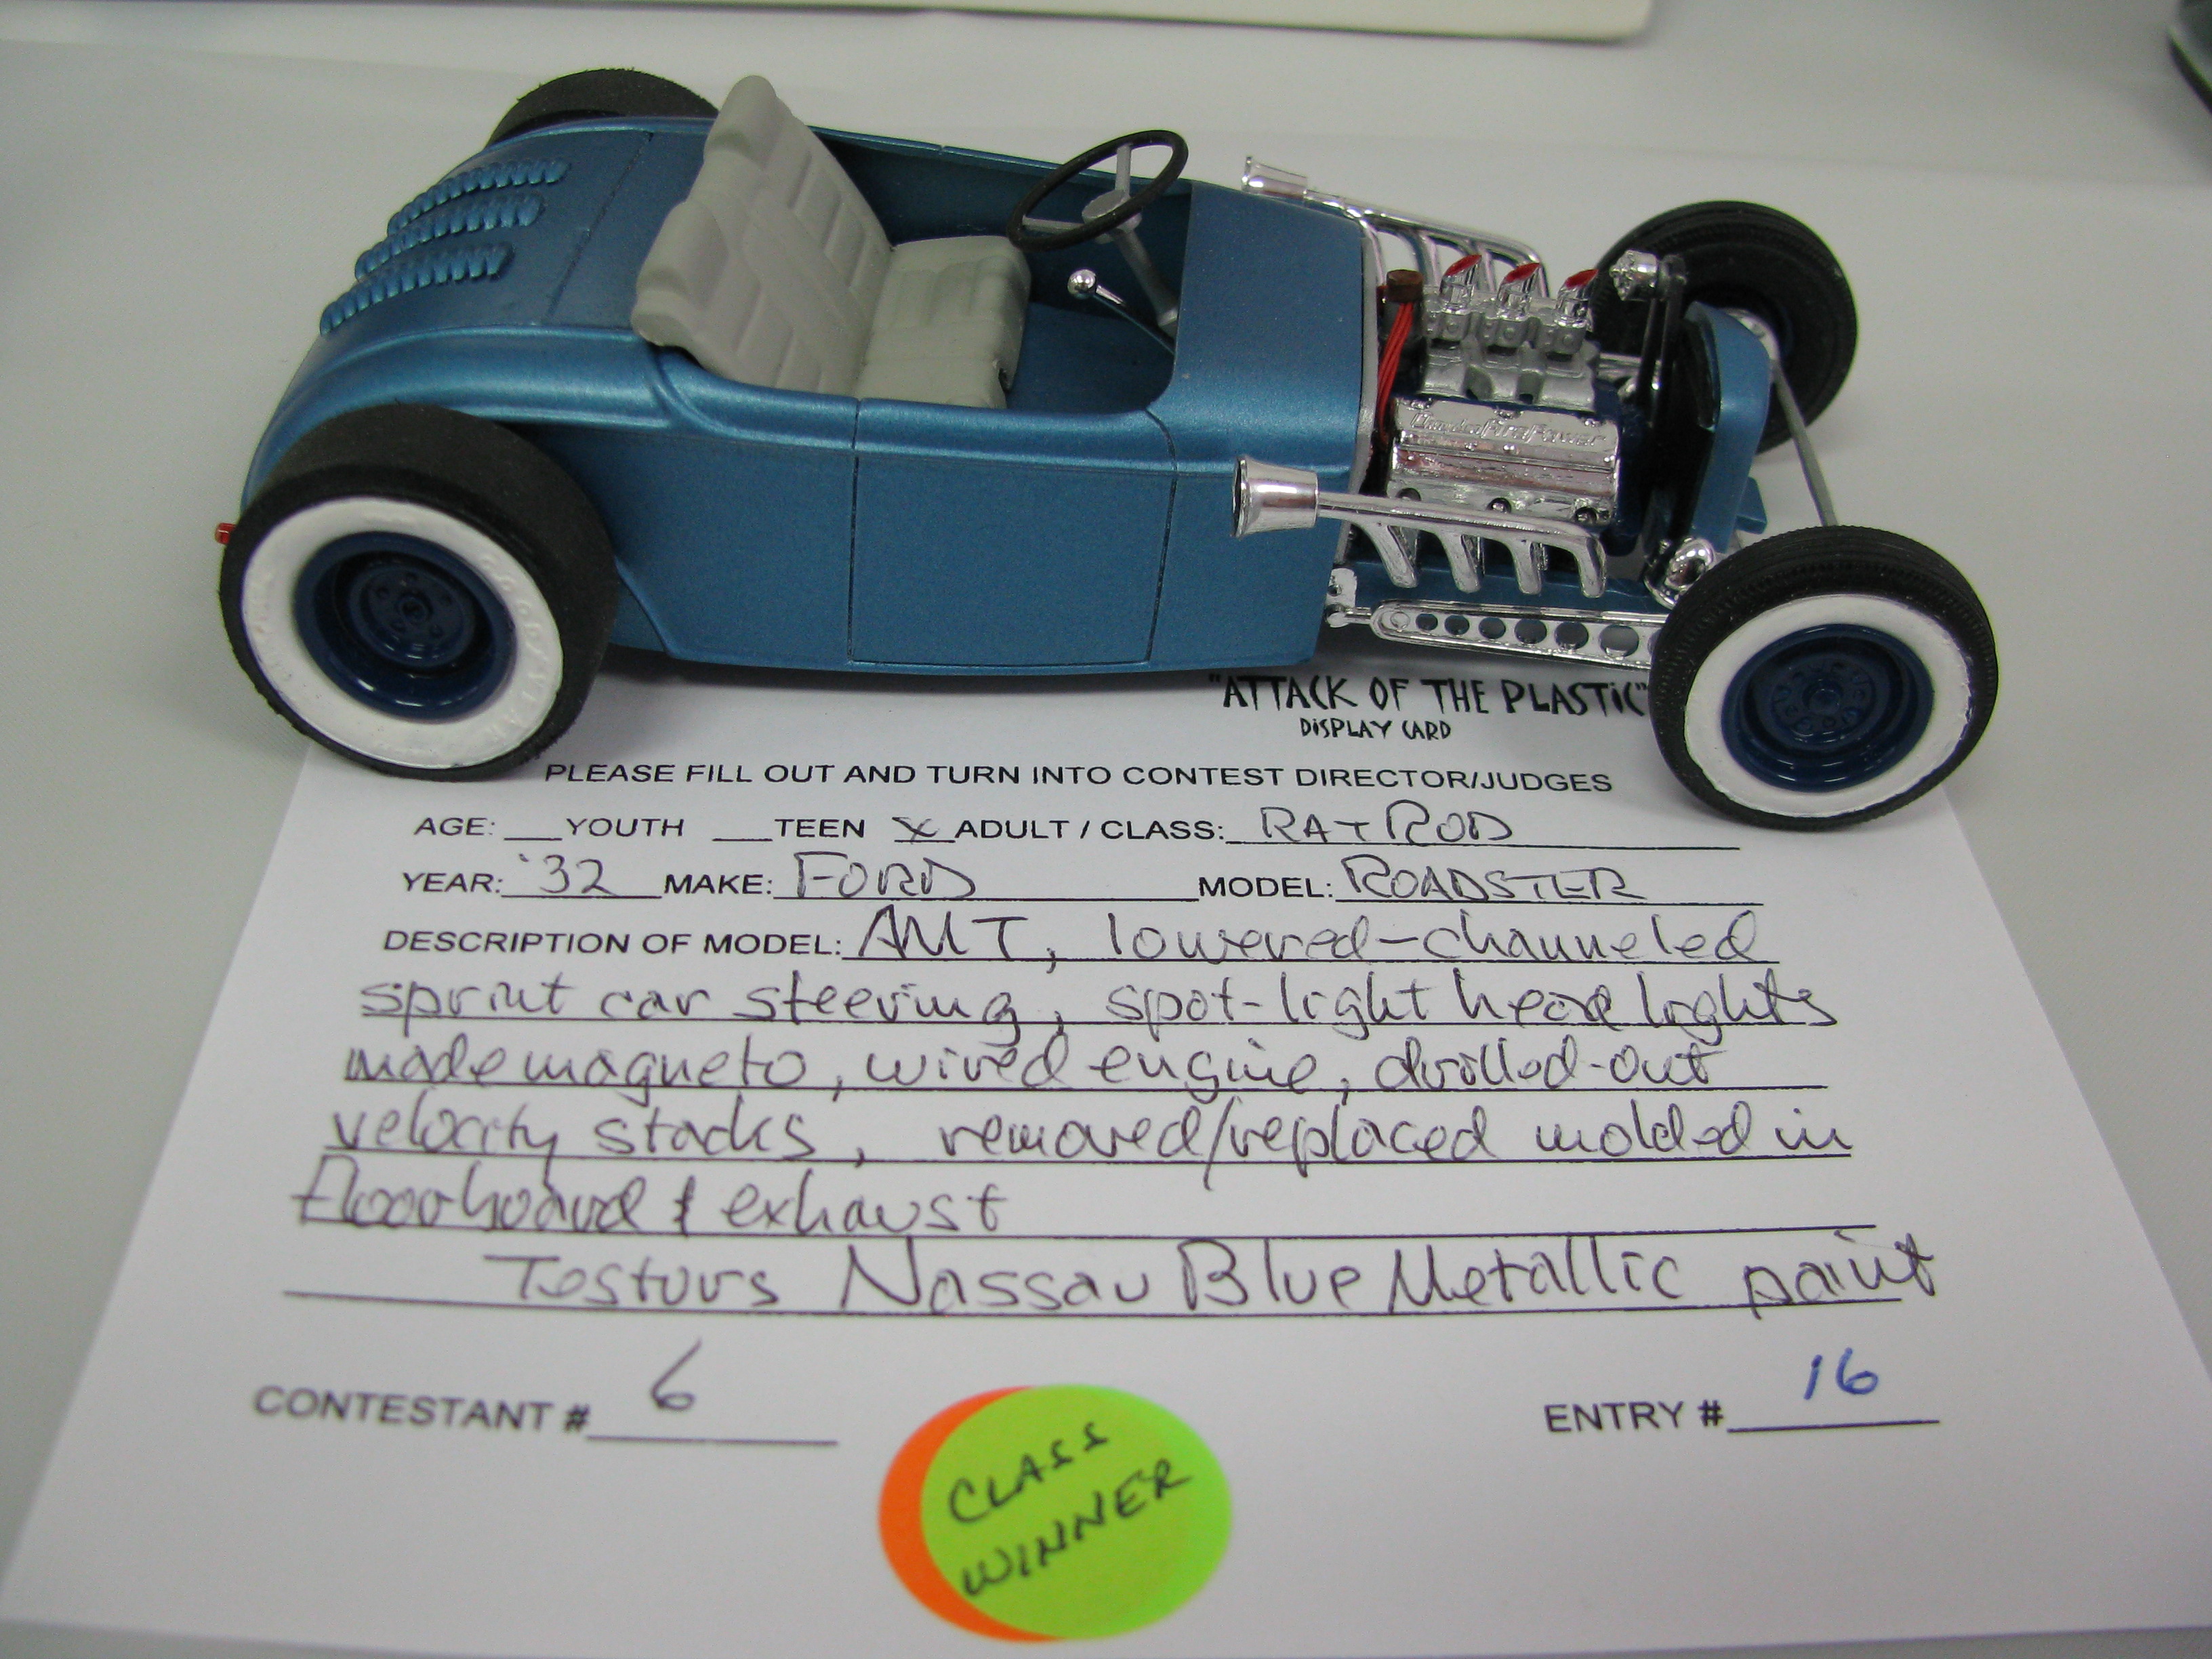 FirePower
GOODYEAR
"ATTACK OF THE PLASTIC"
DISPLAY CARD
PLEASE FILL OUT AND TURN INTO CONTEST DIRECTOR/JUDGES
AGE: __YOUTH __TEEN X ADULT / CLASS: RAT ROD
YEAR: '32 MAKE: FORD MODEL: ROADSTER
DESCRIPTION OF MODEL: AMT, lowered-channeled
sprint car steering, spot-light head lights
made magneto, wired engine, drilled-out
velocity stacks, removed/replaced molded in
floorboard & exhaust
Testors Nassau Blue Metallic paint
CONTESTANT # 6 ENTRY # 16
CLASS
WINNER